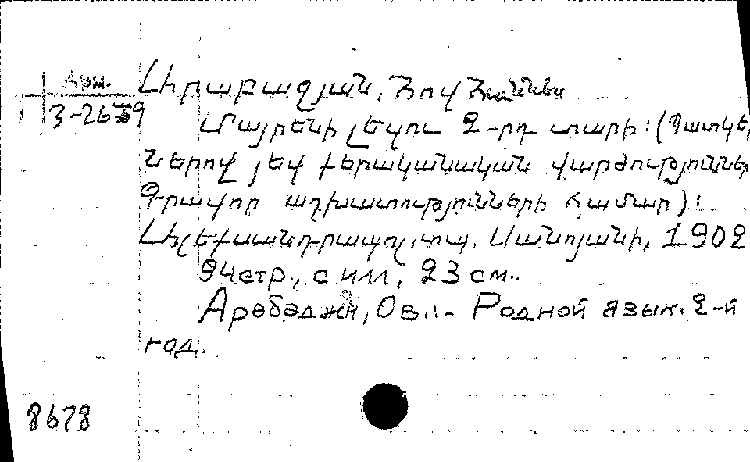 Арм.
3-2659
Արաբաջյան, Հովհաննես
Մայրենի լեզու 2-րդ տարի: (Պատկե
ներով յեվ քերականական վարժություններ
Գրավոր աշխատությունների համար):
Ալեքսանդրապոլ, տպ. Սանոյանի, 1902
94стр., с илл., 23 см.
Арабаджи, Ов... - Родной язык. 2-й
год.
8678